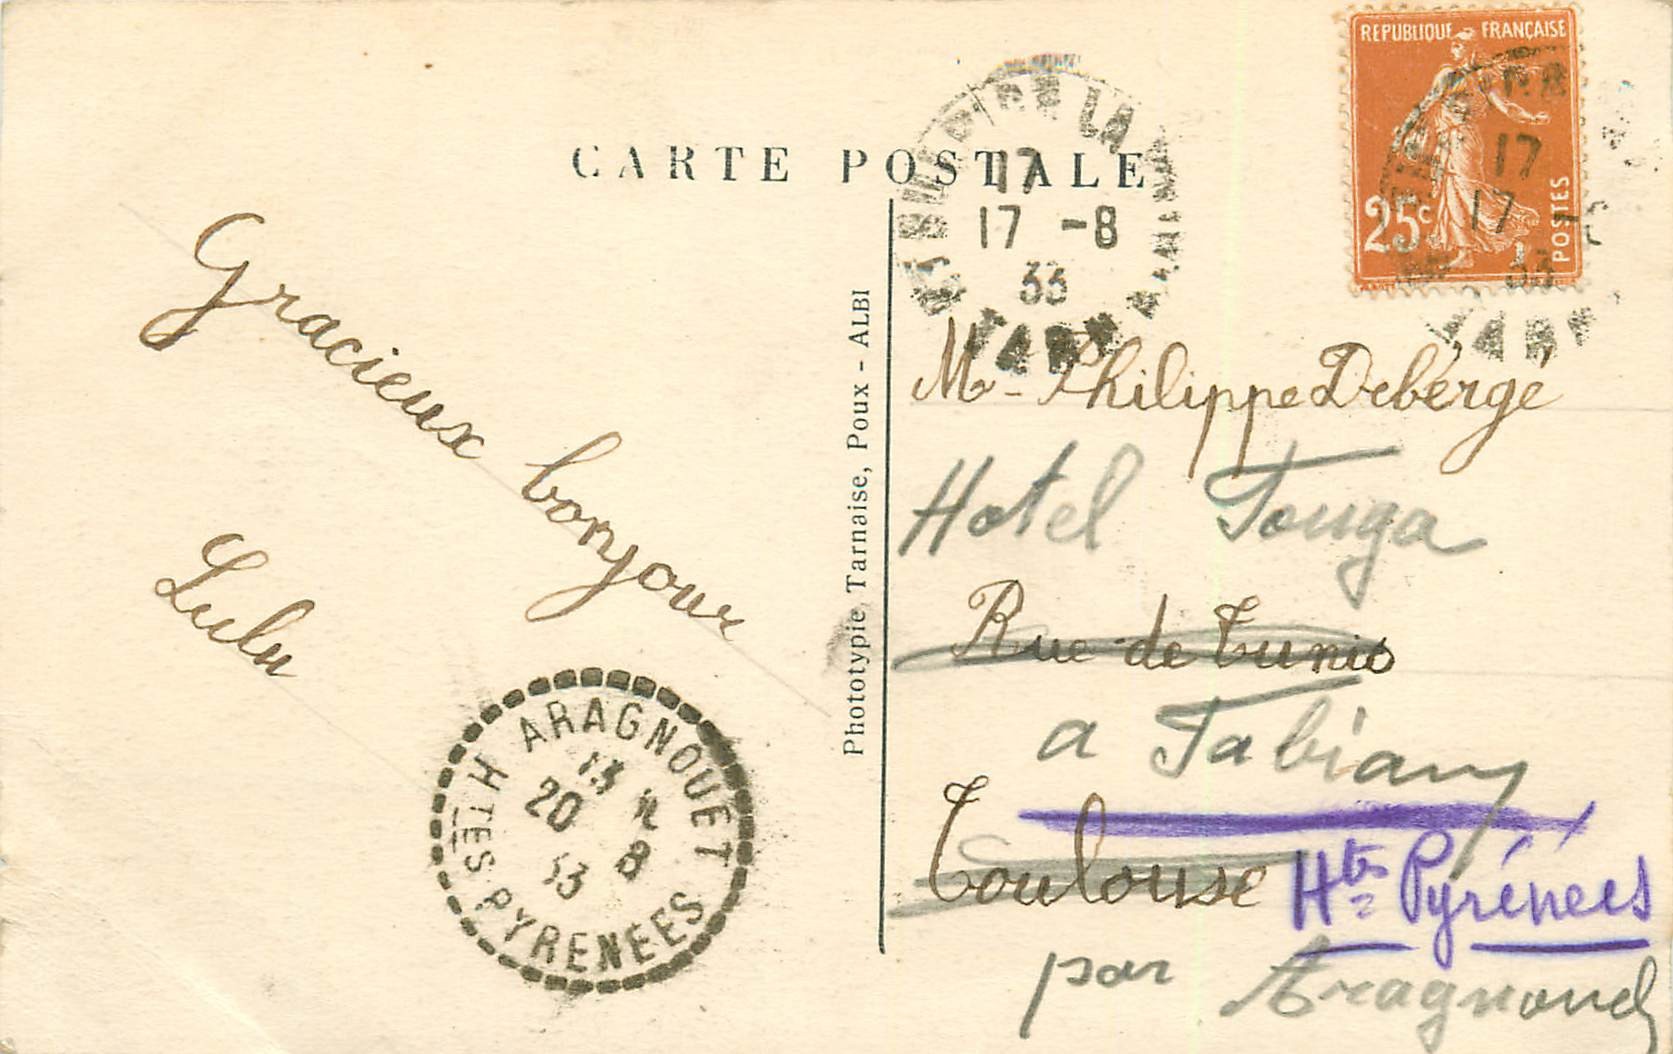 REPUBLIQUE FRANÇAISE
25c
POSTES
17
17
33
TARN
CARTE POSTALE
LA
17
17 -8
33
TARN
Gracieux bonjour
Lulu
ARAGNOUET
13
20 8
33
HTES PYRENEES
Phototypie Tarnaise, Poux - ALBI
Mr Philippe Debérgé
Hotel Fouga
Rue de Tunis
a Fabian
Toulouse Htes Pyrénées
par Aragnouet